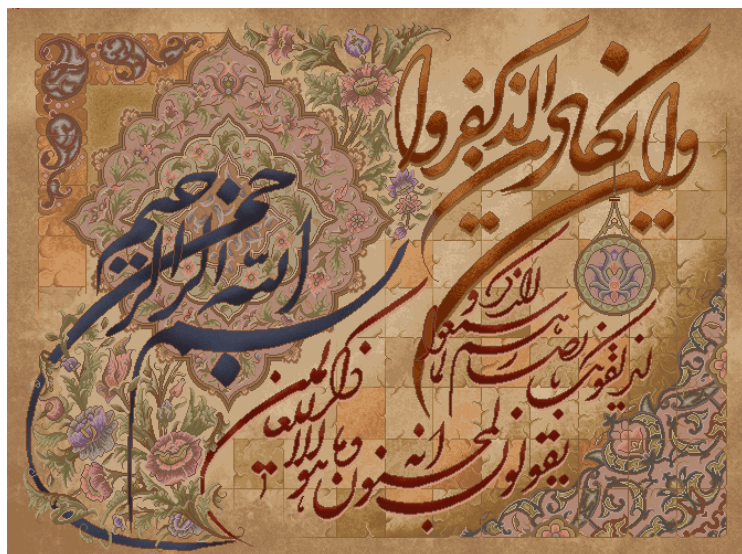 بسم الله الرحمن الرحيم
وإن يكاد الذين كفروا
ليزلقونك بأبصارهم لما سمعوا الذكر و
يقولون إنه لمجنون وما هو إلا ذكر للعالمين